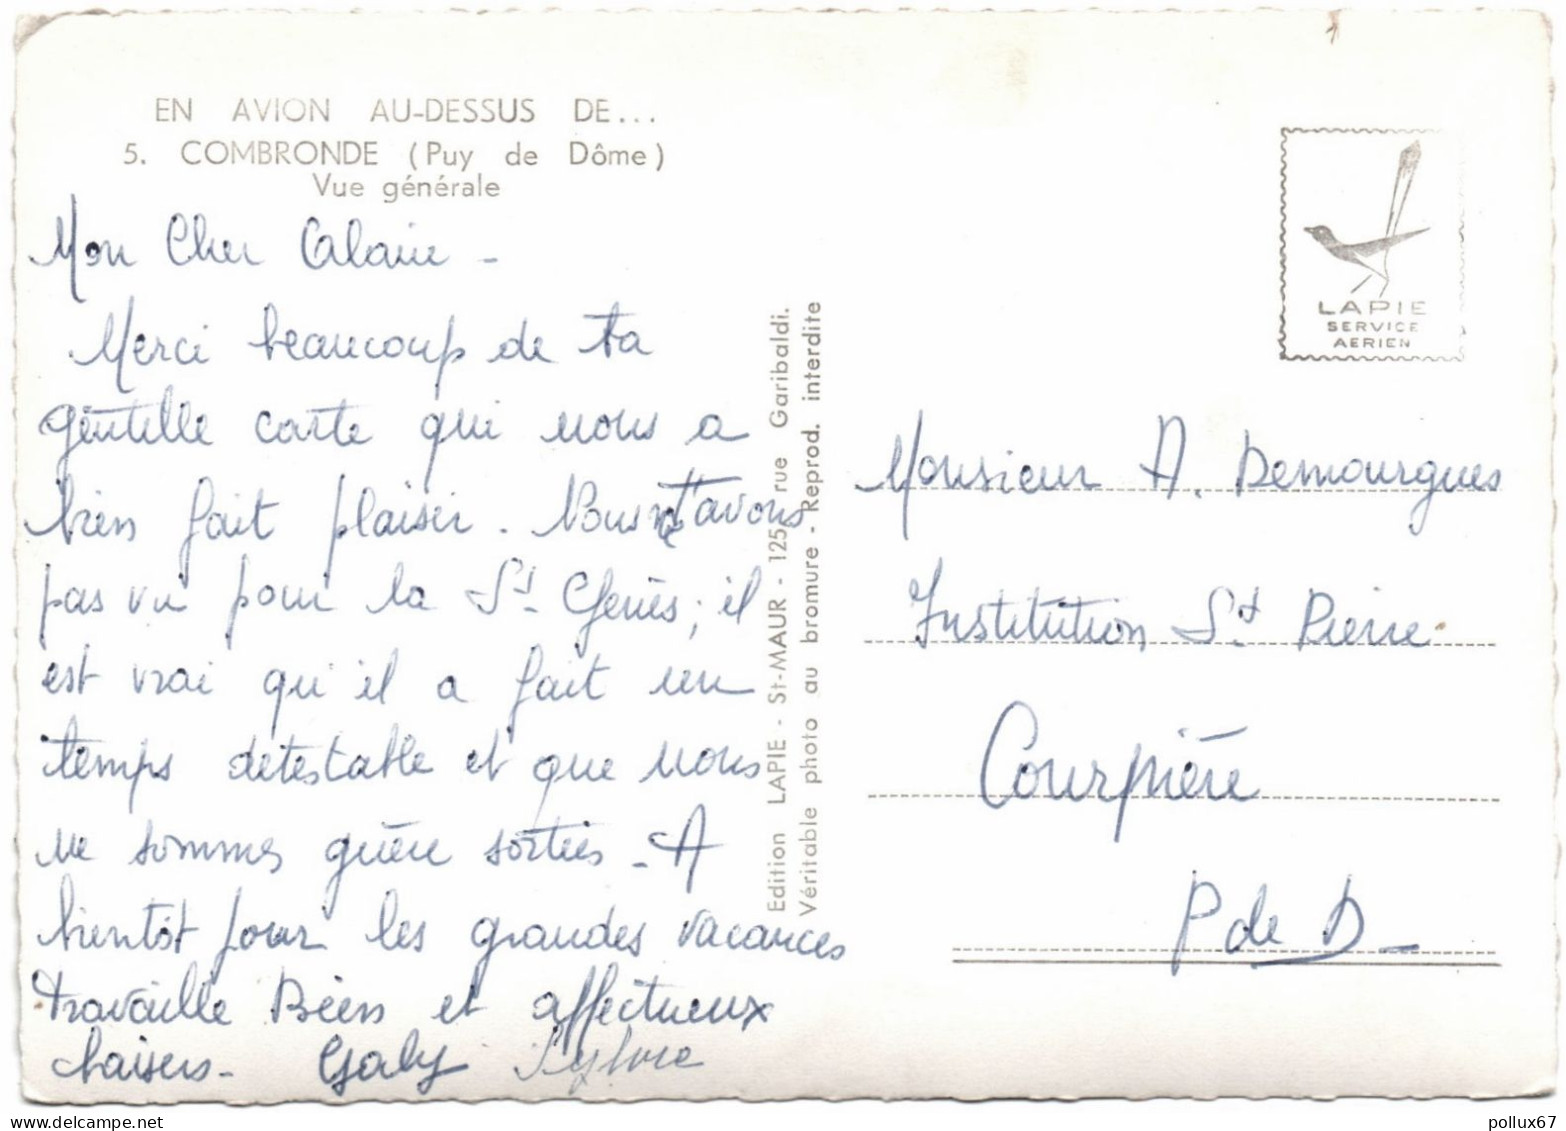 EN AVION AU-DESSUS DE...
5. COMBRONDE (Puy de Dôme)
Vue générale
Mon Cher Alain -
Merci beaucoup de ta
gentille carte qui nous a
bien fait plaisir. Nous ne t'avons
pas vu pour la St Genès; il
est vrai qu'il a fait un
temps détestable et que nous
ne sommes guère sortis - A
bientôt pour les grandes vacances
travaille Bien et affectueux
baisers - Gaby Sylvie
Edition LAPIE - St-MAUR - 125, rue Garibaldi.
Véritable photo au bromure - Reprod. interdite
LAPIE
SERVICE
AERIEN
Monsieur A. Demourgues
Institution St Pierre
Courpière
P de D -
pollux67